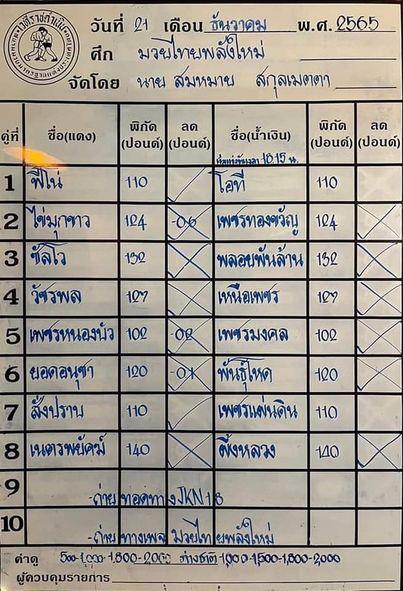 วันที่ 21 เดือน ธันวาคม พ.ศ. 2565
ศึก มวยไทยพลังใหม่
จัดโดย นาย สมหมาย สกุลเมตตา
คู่ที่ ชื่อ(แดง) พิกัด (ปอนด์) ลด (ปอนด์) ชื่อ(น้ำเงิน) พิกัด (ปอนด์) ลด (ปอนด์)
18:15 น.
1 ฟีโน่ 110 โอที 110
2 ไข่มุกขาว 124 -06 เพชรทองขวัญ 124
3 ซัลโว 132 พลอยพันล้าน 132
4 วัชรพล 127 เหนือเพชร 127
5 เพชรหนองบัว 102 -02 เพชรมงคล 102
6 ยอดอนุชา 120 -01 พันธุ์โหด 120
7 สั่งปราบ 110 เพชรแผ่นดิน 110
8 เนตรพยัคฆ์ 140 ผึ้งหลวง 140
9 -ถ่ายทอดทาง JKN 18
10 -ถ่ายทางเพจ มวยไทยพลังใหม่
ค่าดู 500-1,000-1,500-2,000 ต่างชาติ 1,000-1,500-1,800-2,000
ผู้ควบคุมรายการ